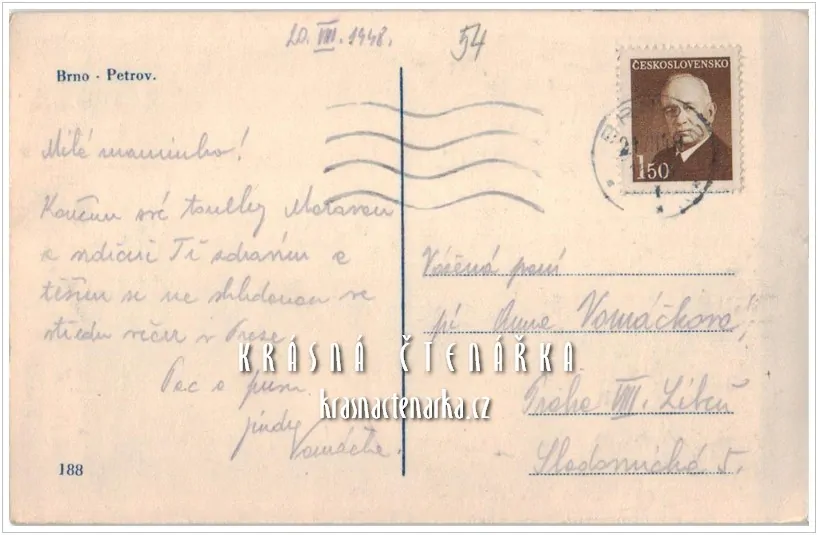 20. VIII. 1948.
54
Brno - Petrov.
ČESKOSLOVENSKO
1 50
Milá maminko!
Končím své toulky Moravou
a srdečně Tě zdravím a
těším se na shledanou ve
středu večer v Praze
Pac a pusu
Jindy
Vomáčka.
Vážená paní
pí Anna Vomáčková
Praha VIII. Libeň
5.
KRÁSNÁ ČTENÁŘKA
krasnactenarka.cz
188